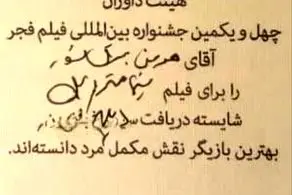 هیئت داوران
چهل و یکمین جشنواره بین‌المللی فیلم فجر
آقای
را برای فیلم سینما متروپل
شایسته دریافت سیمرغ بلورین
بهترین بازیگر نقش مکمل مرد دانسته‌اند.